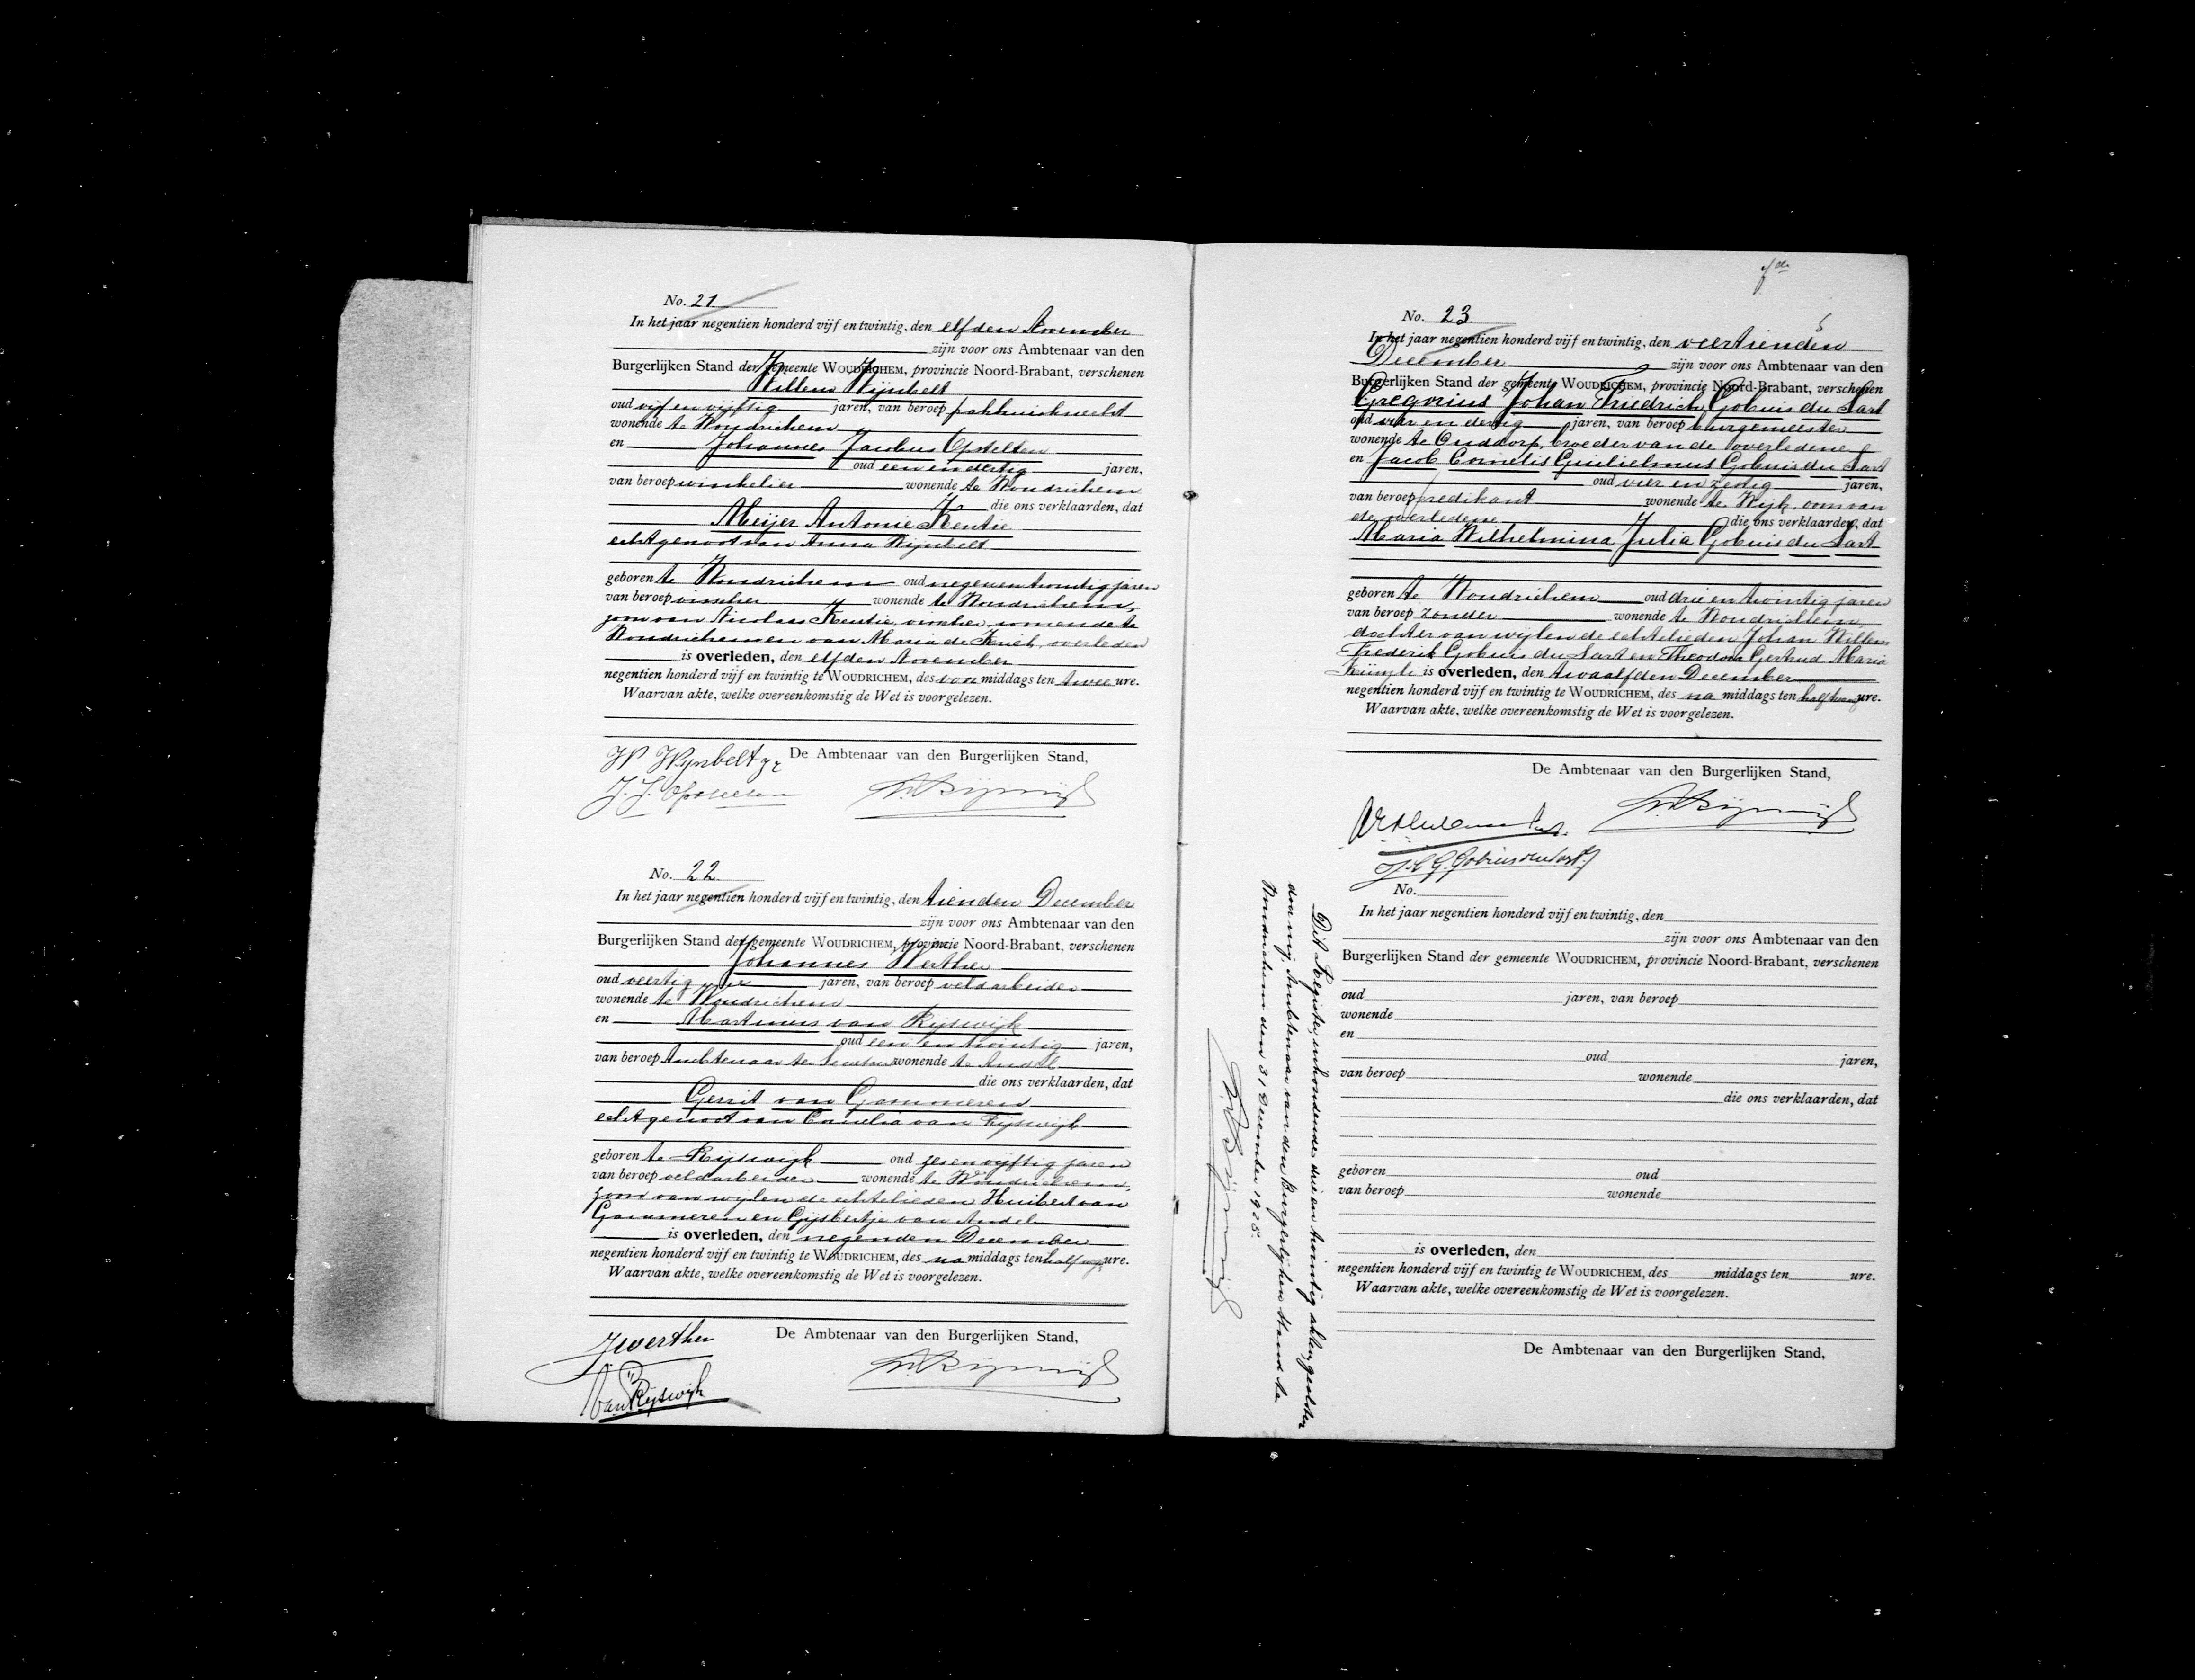 No. 21
In het jaar negentien honderd vijf en twintig, den elfden November
zijn voor ons Ambtenaar van den
Burgerlijken Stand der gemeente WOUDRICHEM, provincie Noord-Brabant, verschenen
Willem Wijnbelt
oud vijf en vijftig jaren, van beroep pakhuisknecht
wonende te Woudrichem
en Johannes Jacobus Opstelten
oud een en dertig jaren,
van beroep winkelier wonende te Woudrichem
die ons verklaarden, dat
Meijer Antonie Kentie
echtgenoot van Anna Wijnbelt
geboren te Woudrichem oud negenentwintig jaren
van beroep visscher wonende te Woudrichem,
zoon van Nicolaas Kentie, visscher, wonende te
Woudrichem en van Maria de Kuch, overleden
is overleden, den elfden November
negentien honderd vijf en twintig te WOUDRICHEM, des voormiddags ten twee ure.
Waarvan akte, welke overeenkomstig de Wet is voorgelezen.
W Wijnbelt Zr De Ambtenaar van den Burgerlijken Stand,
J. J. Opstelten
No. 22.
In het jaar negentien honderd vijf en twintig, den tienden December
zijn voor ons Ambtenaar van den
Burgerlijken Stand der gemeente WOUDRICHEM, provincie Noord-Brabant, verschenen
Johannes Werther
oud veertig jaren, van beroep veldarbeider
wonende te Woudrichem
en Martinus van Rijswijk
oud een en twintig jaren,
van beroep Ambtenaar ter Secretarie wonende te Andel
die ons verklaarden, dat
Gerrit van Gammeren
echtgenoot van Cornelia van Rijswijk
geboren te Rijswijk oud zesenvijftig jaren
van beroep veldarbeider wonende te Woudrichem,
zoon van wijlen de echtelieden Huibert van
Gammeren en Gijsbertje van Andel
is overleden, den negenden December
negentien honderd vijf en twintig te WOUDRICHEM, des na middags ten half ure.
Waarvan akte, welke overeenkomstig de Wet is voorgelezen.
JWerther De Ambtenaar van den Burgerlijken Stand,
van Rijswijk
No. 23.
In het jaar negentien honderd vijf en twintig, den veertienden
December zijn voor ons Ambtenaar van den
Burgerlijken Stand der gemeente WOUDRICHEM, provincie Noord-Brabant, verschenen
Gregorius Johan Friedrich Gobius du Sart
oud vier en dertig jaren, van beroep burgemeester
wonende te Ouddorp, broeder van de overledene
en Jacob Cornelis Guilielmus Gobius du Sart
oud vier en zestig jaren,
van beroep predikant wonende te Wijk, oom van
de overledene die ons verklaarden, dat
Maria Wilhelmina Julia Gobius du Sart
geboren te Woudrichem oud drie en twintig jaren
van beroep zonder wonende te Woudrichem,
dochter van wijlen de echtelieden Johan Willem
Frederik Gobius du Sart en Theodora Gertrud Maria
is overleden, den twaalfden December
negentien honderd vijf en twintig te WOUDRICHEM, des na middags ten half ure.
Waarvan akte, welke overeenkomstig de Wet is voorgelezen.
De Ambtenaar van den Burgerlijken Stand,
J. C. G. Gobius du Sart
No.
In het jaar negentien honderd vijf en twintig, den
zijn voor ons Ambtenaar van den
Burgerlijken Stand der gemeente WOUDRICHEM, provincie Noord-Brabant, verschenen
oud jaren, van beroep
wonende
en
oud jaren,
van beroep wonende
die ons verklaarden, dat
geboren oud
van beroep wonende
is overleden, den
negentien honderd vijf en twintig te WOUDRICHEM, des middags ten ure.
Waarvan akte, welke overeenkomstig de Wet is voorgelezen.
De Ambtenaar van den Burgerlijken Stand,
Dit Register, inhoudende drie en twintig akten, gesloten
door mij, Ambtenaar van den Burgerlijken Stand te
Woudrichem den 31 December 1925.